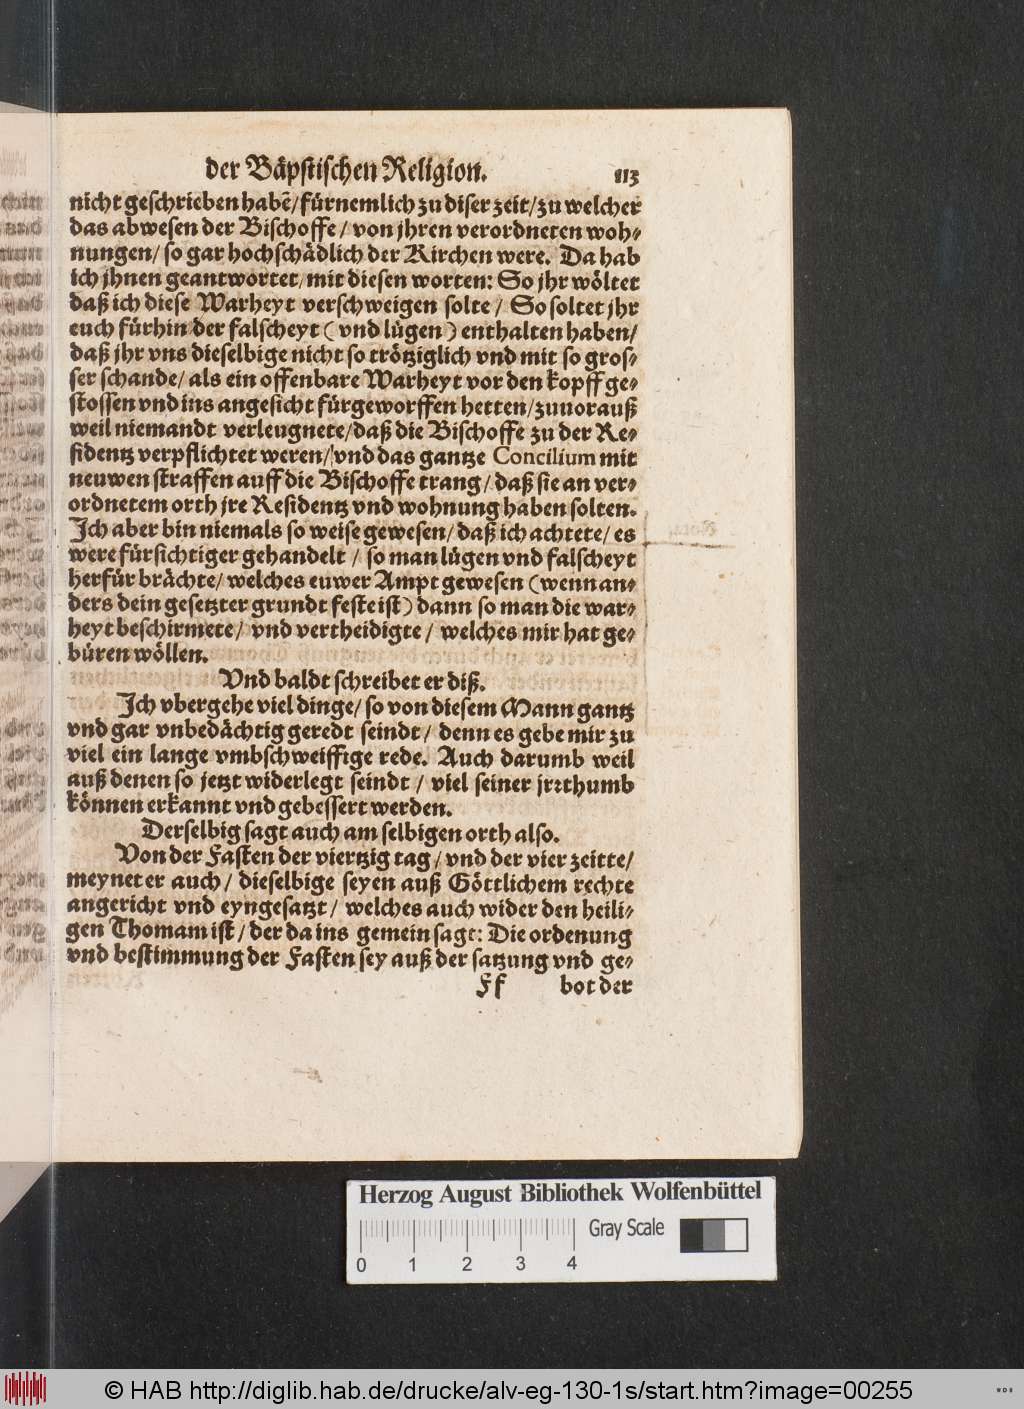 der Bäpstischen Religion. 113
nicht geschrieben habẽ/fürnemlich zu diser zeit/zu welcher
das abwesen der Bischoffe/von jhren verordneten woh-
nungen/so gar hochschädlich der Kirchen were. Da hab
ich jhnen geantwortet/mit diesen worten: So jhr wöltet
daß ich diese Warheyt verschweigen solte/ So soltet jhr
euch fürhin der falscheyt (vnd lügen) enthalten haben/
daß jhr vns dieselbige nicht so trötziglich vnd mit so gros-
ser schande/als ein offenbare Warheyt vor den kopff ge-
stossen vnd ins angesicht fürgeworffen hetten/zuuorauß
weil niemandt verleugnete/daß die Bischoffe zu der Re-
sidentz verpflichtet weren/vnd das gantze Concilium mit
neuwen straffen auff die Bischoffe trang/daß sie an ver-
ordnetem orth jre Residentz vnd wohnung haben solten.
Ich aber bin niemals so weise gewesen/daß ich achtete/es
were fürsichtiger gehandelt/so man lügen vnd falscheyt
herfür brächte/welches euwer Ampt gewesen (wenn an-
ders dein gesetzter grundt feste ist) dann so man die war-
heyt beschirmete/ vnd vertheidigte/welches mir hat ge-
büren wöllen.
Vnd baldt schreibet er diß.
Ich vbergehe viel dinge/so von diesem Mann gantz
vnd gar vnbedächtig geredt seindt/denn es gebe mir zu
viel ein lange vmbschweiffige rede. Auch darumb weil
auß denen so jetzt widerlegt seindt/viel seiner jrꝛthumb
können erkannt vnd gebessert werden.
Derselbig sagt auch am selbigen orth also.
Von der Fasten der viertzig tag/vnd der vier zeitte/
meynet er auch/dieselbige seyen auß Göttlichem rechte
angericht vnd eyngesatzt/welches auch wider den heili-
gen Thomam ist/der da ins gemein sagt: Die ordenung
vnd bestimmung der Fasten sey auß der satzung vnd ge-
Ff bot der
Herzog August Bibliothek Wolfenbüttel
Gray Scale
0 1 2 3 4
© HAB http://diglib.hab.de/drucke/alv-eg-130-1s/start.htm?image=00255